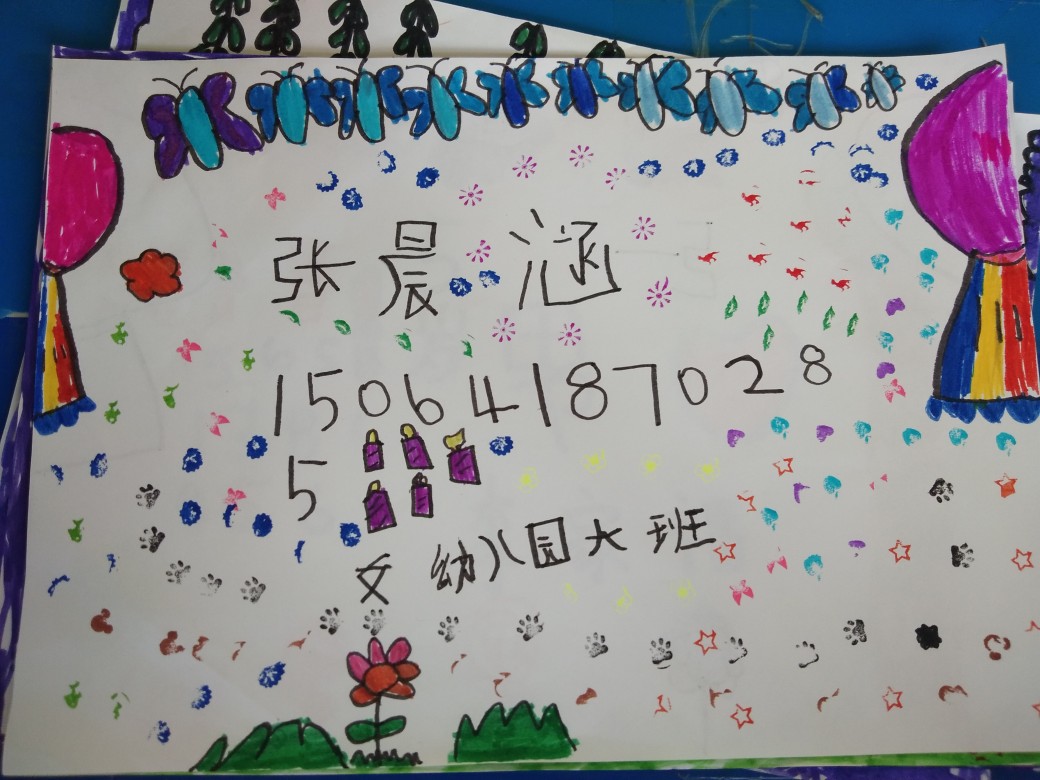 张晨涵
15064187028
5
女 幼儿园大班